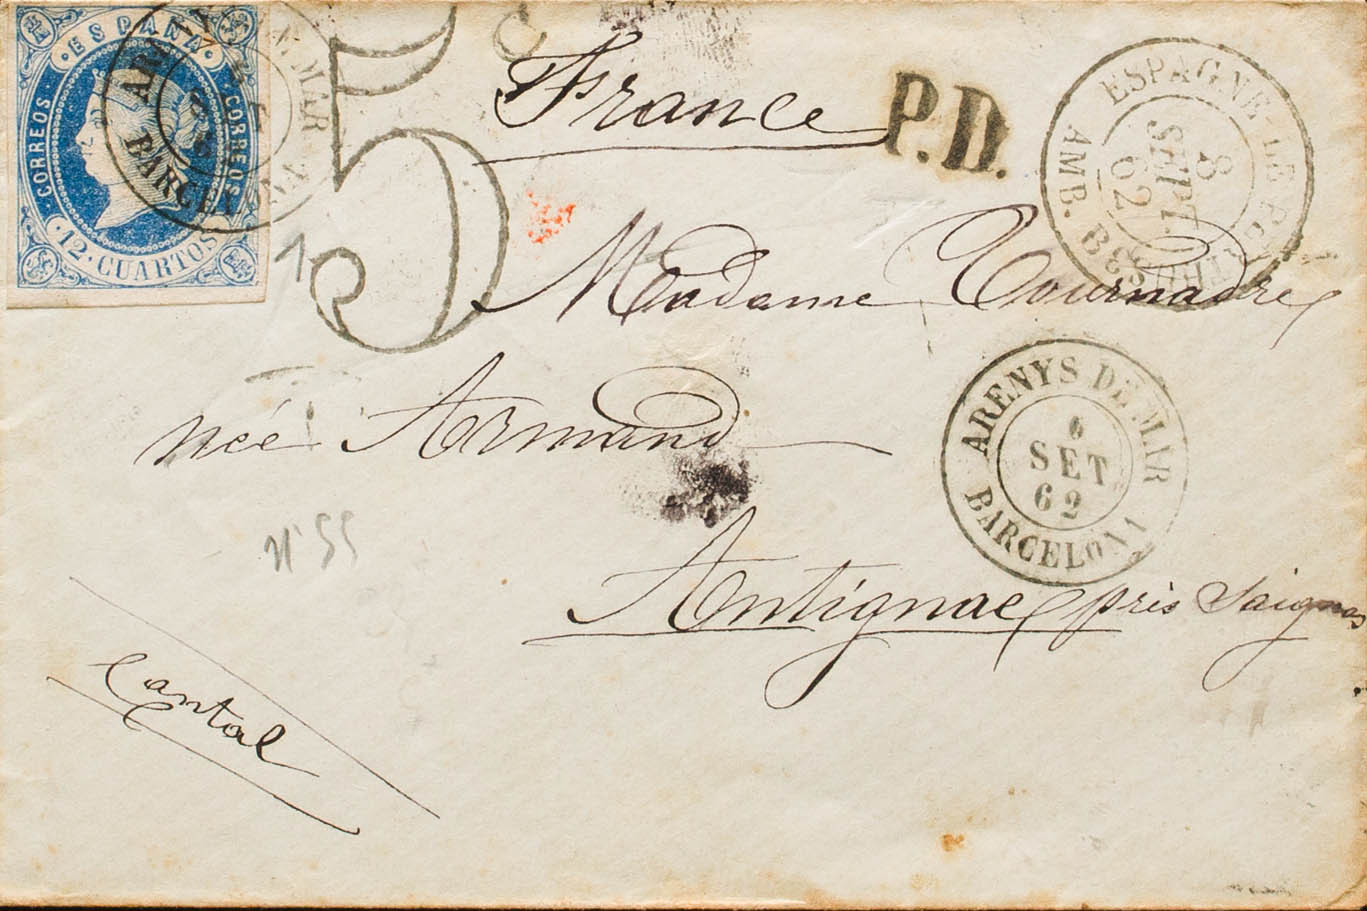 ESPAÑA
CORREOS
CORREOS
12 CUARTOS
5
France
P.D.
ESPAGNE
8
SEPT.
62
AMB. BES
Madame Tournadre
née Armand
ARENYS DE MAR
6
SET
62
BARCELONA
Antignac près Saignes
N° 55
Cantal